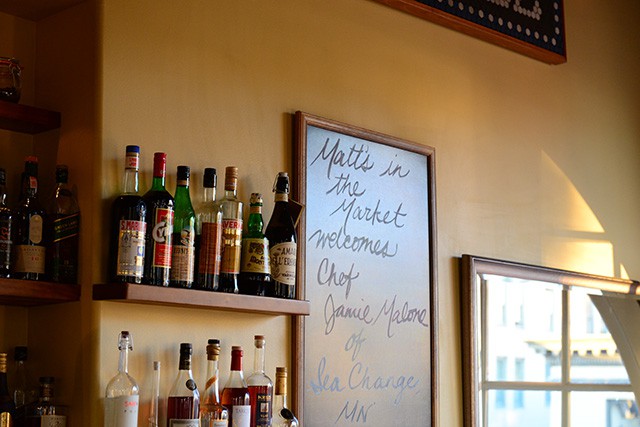 Matt's in
the
Market
welcomes
Chef
Jamie Malone
of
Sea Change,
MN